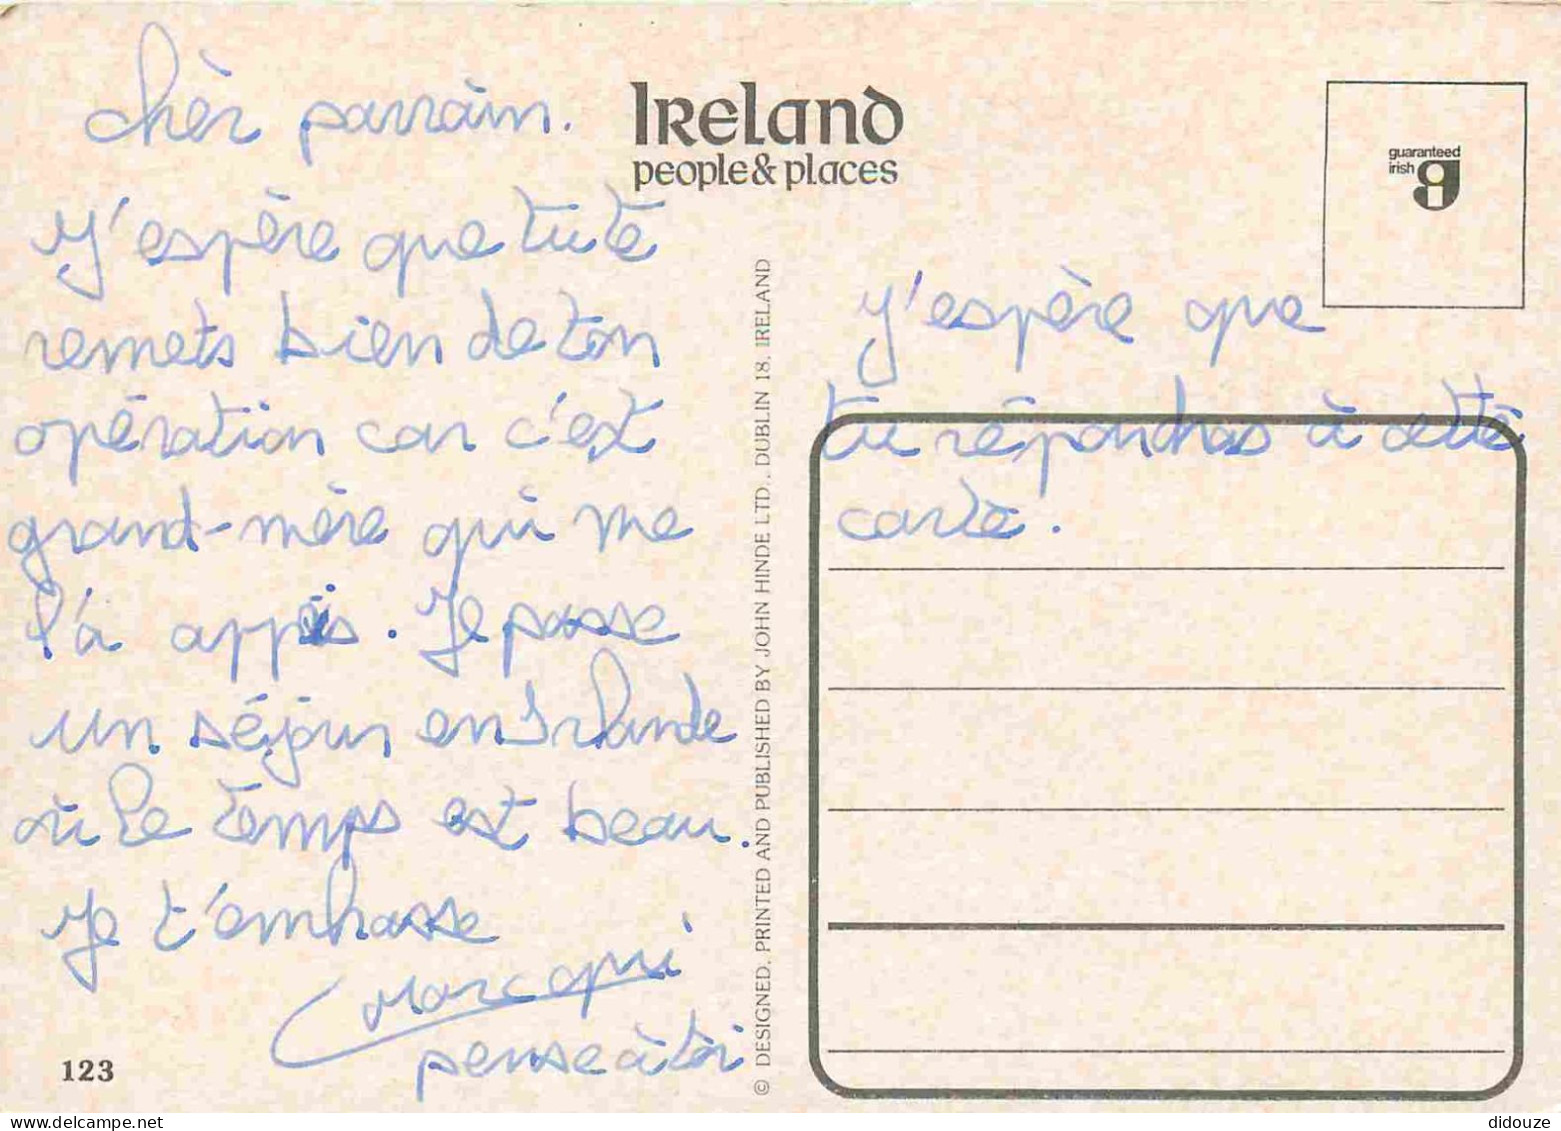 chèr parrain.
J'espère que tu te
remets bien de ton
opération car c'est
grand-mère qui me
l'a appris. Je passe
un séjour en Irlande
où le temps est beau.
Je t'embrasse
Marc qui
pense à toi
123
IRELAND
people & places
© DESIGNED, PRINTED AND PUBLISHED BY JOHN HINDE LTD., DUBLIN 18, IRELAND
guaranteed
irish
J'espère que
tu répondras à cette
carte.
didouze